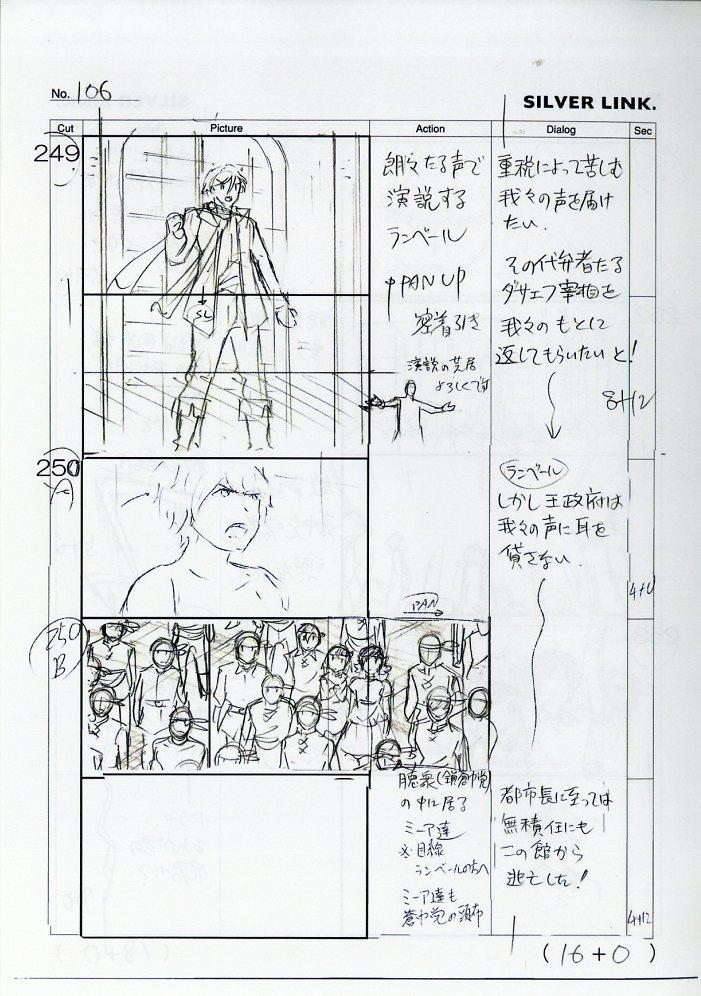 No. 106
SILVER LINK.
Cut
Picture
Action
Dialog
Sec
249
朗々たる声で
演説する
ランベール
PAN UP
密着引き
演説の芝居
よろしくです
SL
重税によって苦しむ
我々の声を届け
たい.
その代弁者たる
ダサエフ宰相を
我々のもとに
返してもらいたいと!
8+12
250
A
ランベール
しかし王政府は
我々の声に耳を
貸さない.
4+0
250
B
PAN
聴衆(鎖蒼巾党)
の中に居る
ミーア達
※目線
ランベールの方へ
ミーア達も
蒼巾党の頭布
都市長に至っては
無責任にも
この館から
逃亡した!
4+12
(16+0)